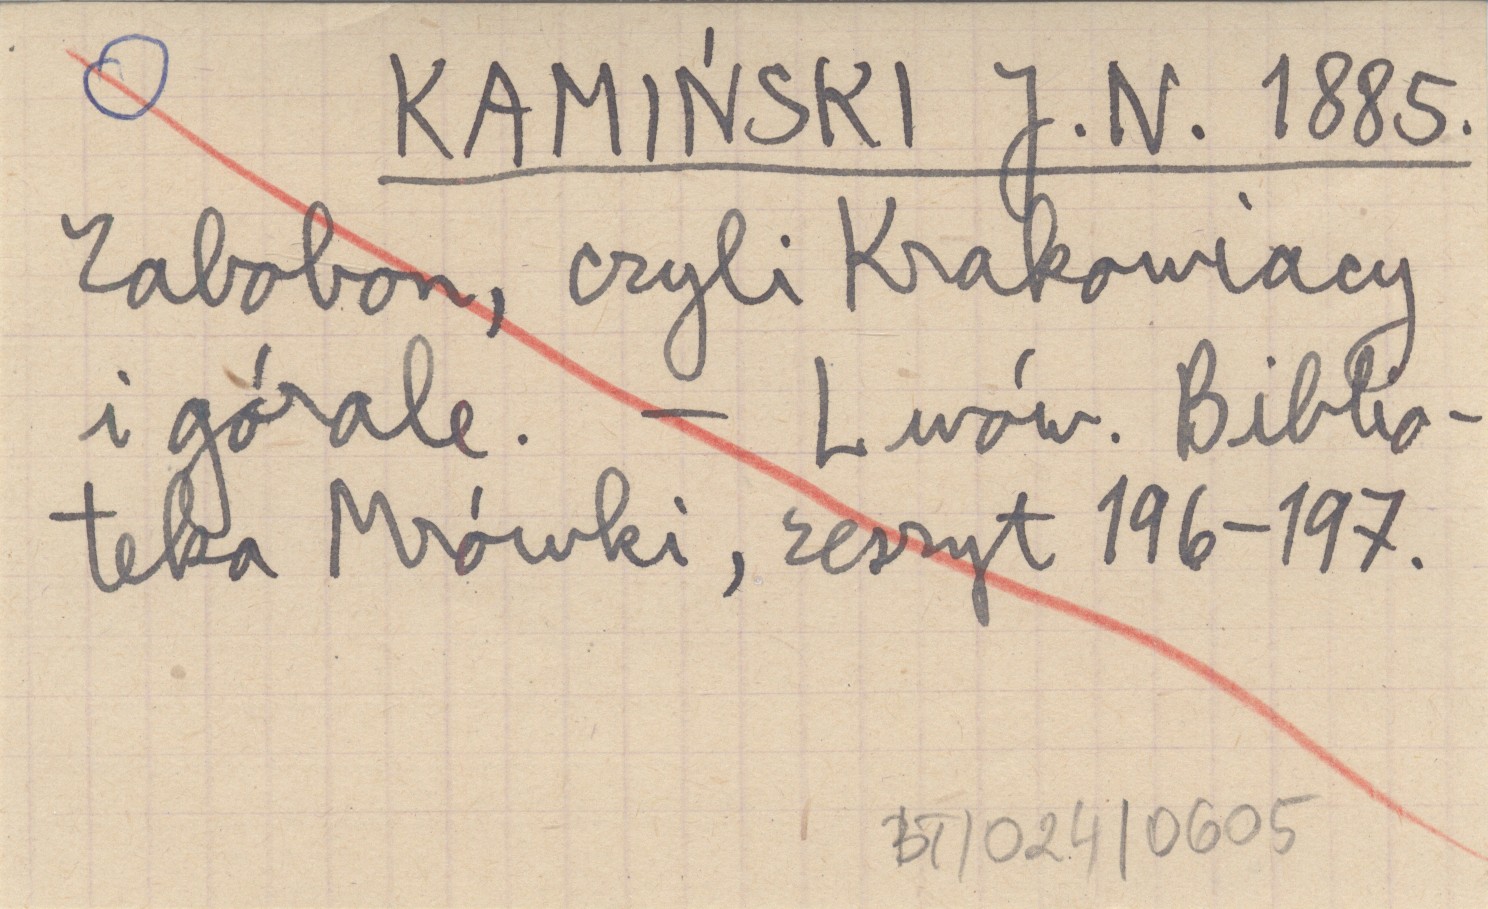 KAMIŃSKI J. N. 1885.
Zabobon, czyli Krakowiacy
i górale. – Lwów. Biblio-
teka Mrówki, zeszyt 196–197.
BT/024/0605